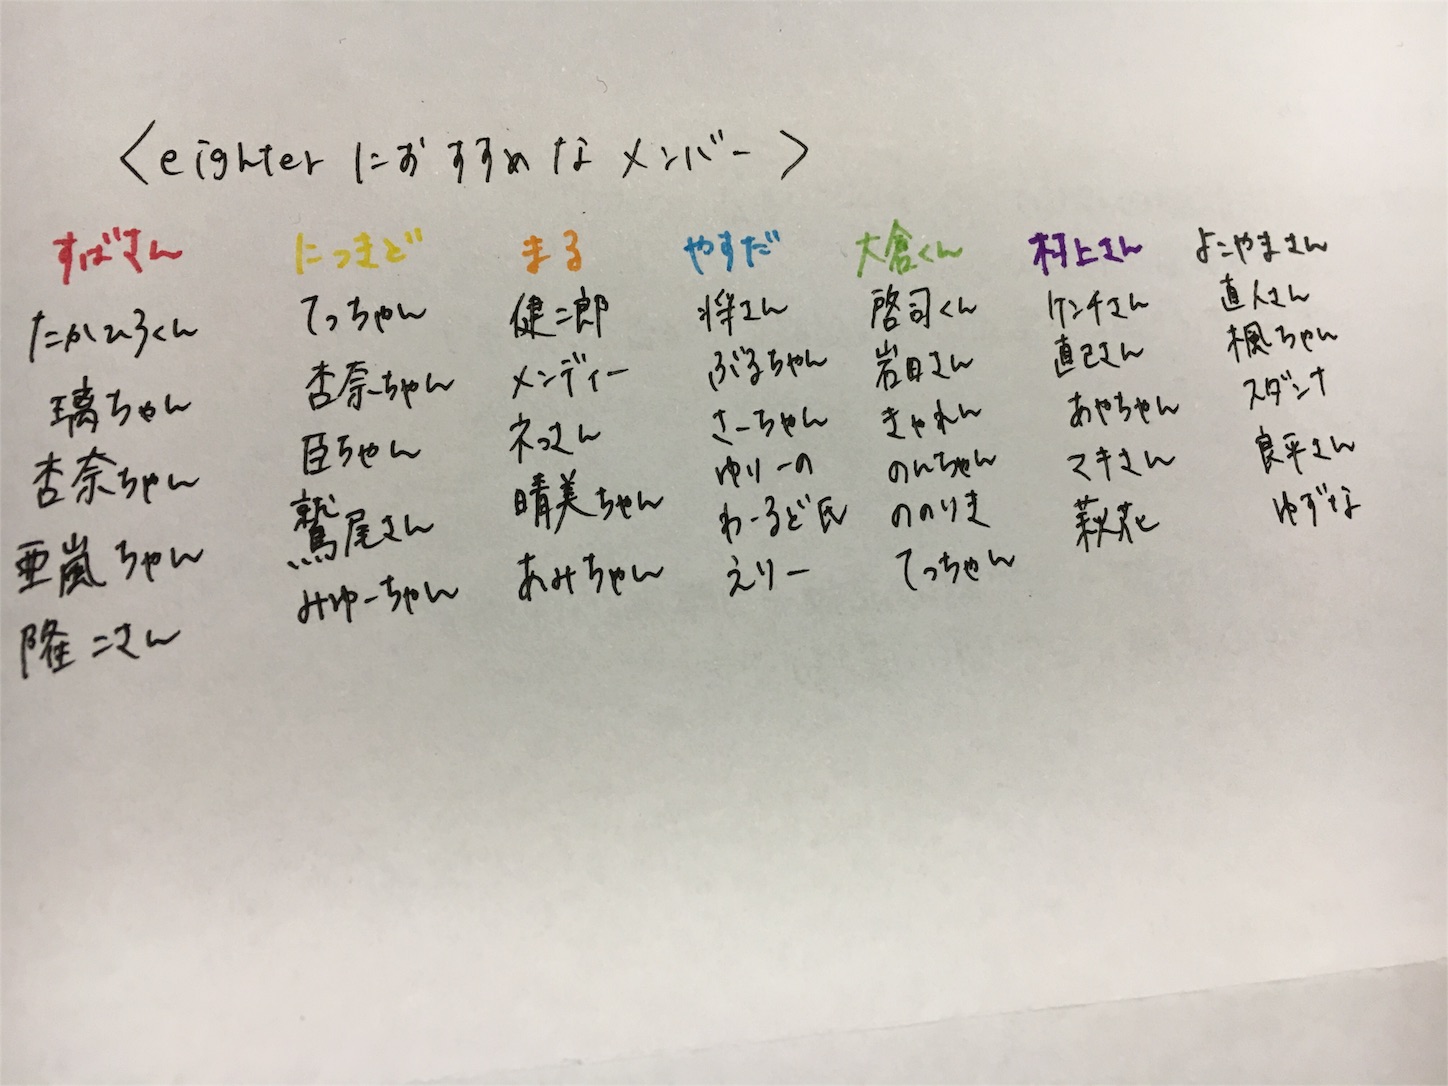 〈eighterにおすすめなメンバー〉
すばさん にっまど まる やすだ 大倉くん 村上さん よこやまさん
たかひろくん てっちゃん 健二郎 将さん 啓司くん ケンチさん 直人さん
璃ちゃん 杏奈ちゃん メンディー ぶるちゃん 岩田さん 直己さん 楓ちゃん
杏奈ちゃん 臣ちゃん ネスさん さーちゃん きゃれん あやちゃん スダンナ
亜嵐ちゃん 鷲尾さん 晴美ちゃん ゆりーの のんちゃん マキさん 良平さん
隆二さん みゆーちゃん あみちゃん わーるど氏 ののりき 萩花 ゆずな
えりー てっちゃん